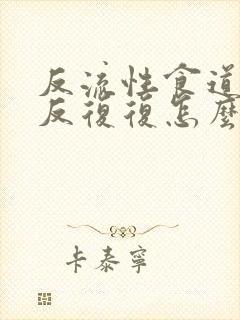 反流性食道
反復復怎麼
卡泰寧